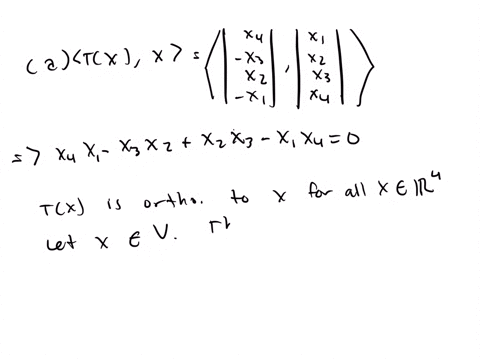 (a) <T(x), x> = < | x4 -x3 x2 -x1 | , | x1 x2 x3 x4 | >
=> x4 x1 - x3 x2 + x2 x3 - x1 x4 = 0
T(x) is ortho. to x for all x ∈ ℝ^4
Let x ∈ V.